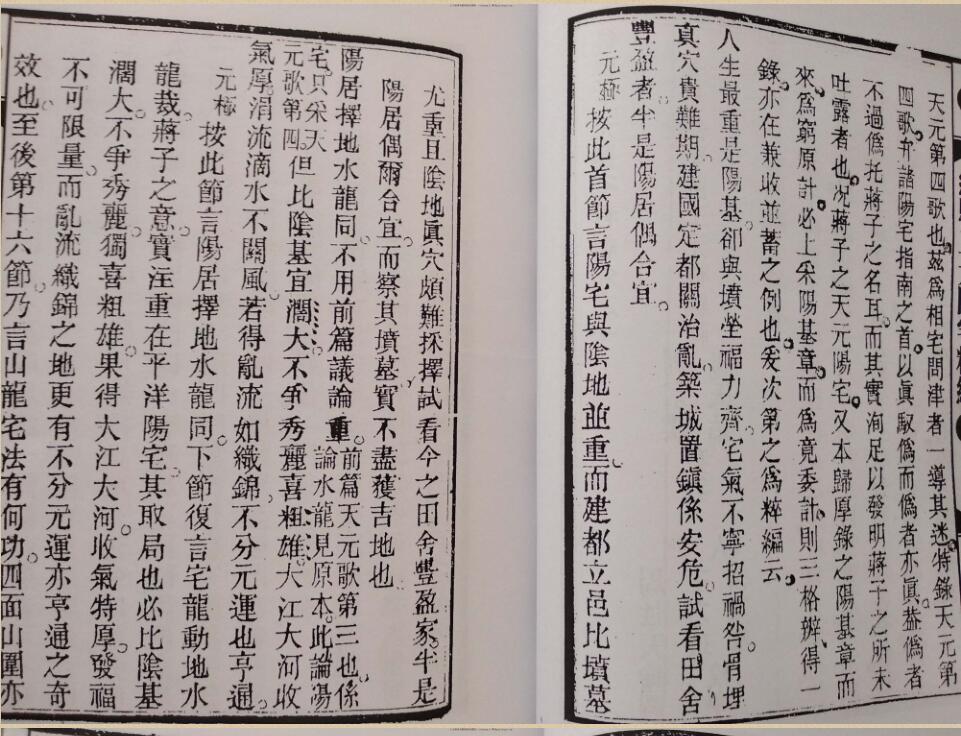 天元第四歌也茲爲相宅問津者一導其迷特錄天元第
四歌弁諸陽宅指南之首以眞馭僞而僞者亦眞葢僞者
不過僞托蔣子之名耳而其實洵足以發明蔣子之所未
吐露者也况蔣子之天元陽宅又本歸厚錄之陽基章而
來爲窮原計必上采陽基章而爲竟委計則三格辨得一
錄亦在兼收並蓄之例也爰次第之爲粹編云
人生最重是陽基卻與墳塋福力齊宅氣不寧招禍咎骨埋
真穴貴難期建國定都關治亂築城置鎭係安危試看田舍
豐盈者半是陽居偶合宜
元極 按此首節言陽宅與陰地並重而建都立邑比墳墓
尤重且陰地眞穴頗難採擇試看今之田舍豐盈家半是
陽居偶爾合宜而察其墳墓實不盡獲吉地也
陽居擇地水龍同不用前篇議論重前篇天元歌第三也係論水龍見原本此論陽
宅只采天元歌第四但比陰基宜濶大不爭秀麗喜粗雄大江大河收
氣厚涓流滴水不關風若得亂流如織錦不分元運也亨通
元極 按此節言陽居擇地水龍同下節復言宅龍動地水
龍裁蔣子之意實注重在平洋陽宅其取局也必比陰基
濶大不爭秀麗獨喜粗雄果得大江大河收氣特厚發福
不可限量而亂流織錦之地更有不分元運亦亨通之奇
效也至後第十六節乃言山龍宅法有何功四面山圍亦